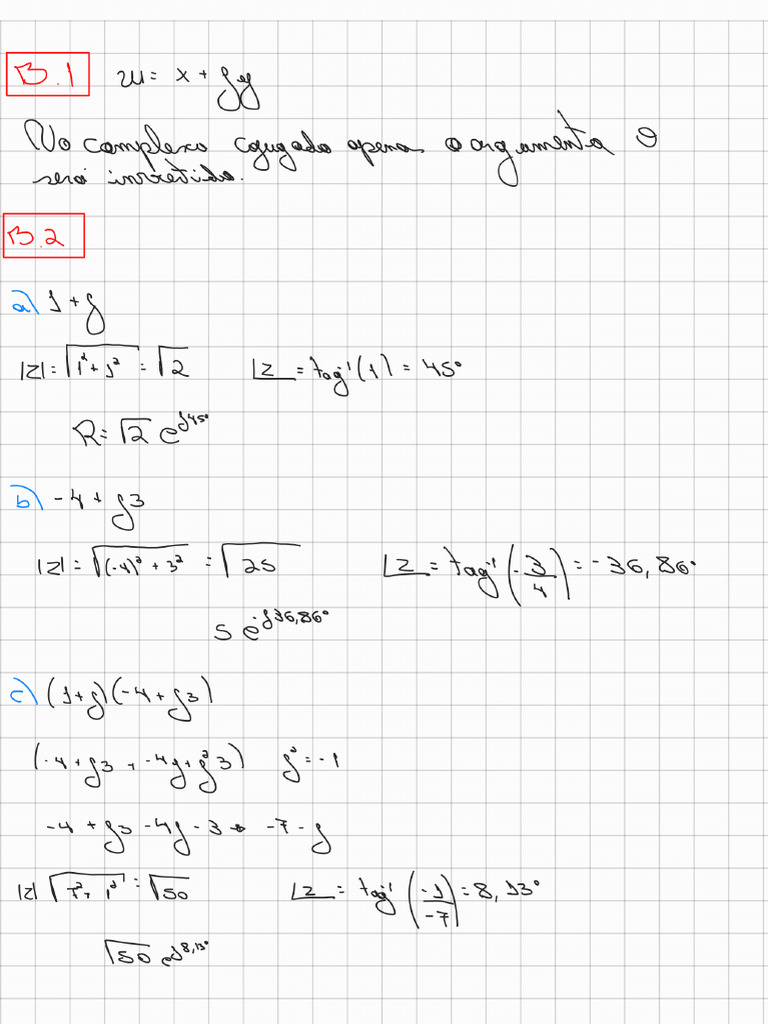 B.1 w = x + jy
No complexo cojugado apenas o argumento θ
será invertido.
B.2
a) 1 + j
|Z| = √(1² + 1²) = √2 ∠Z = tag⁻¹(1) = 45°
R = √2 e^(j45°)
b) -4 + j3
|Z| = √((-4)² + 3²) = √25 ∠Z = tag⁻¹(-3/4) = -36,86°
5 e^(-j36,86°)
c) (1+j)(-4+j3)
(-4 + j3 + -4j + j²3) j² = -1
-4 + j3 - 4j - 3 → -7 - j
|Z| √(7² + 1²) = √50 ∠Z = tag⁻¹(-1/-7) = 8,13°
√50 e^(j8,13°)